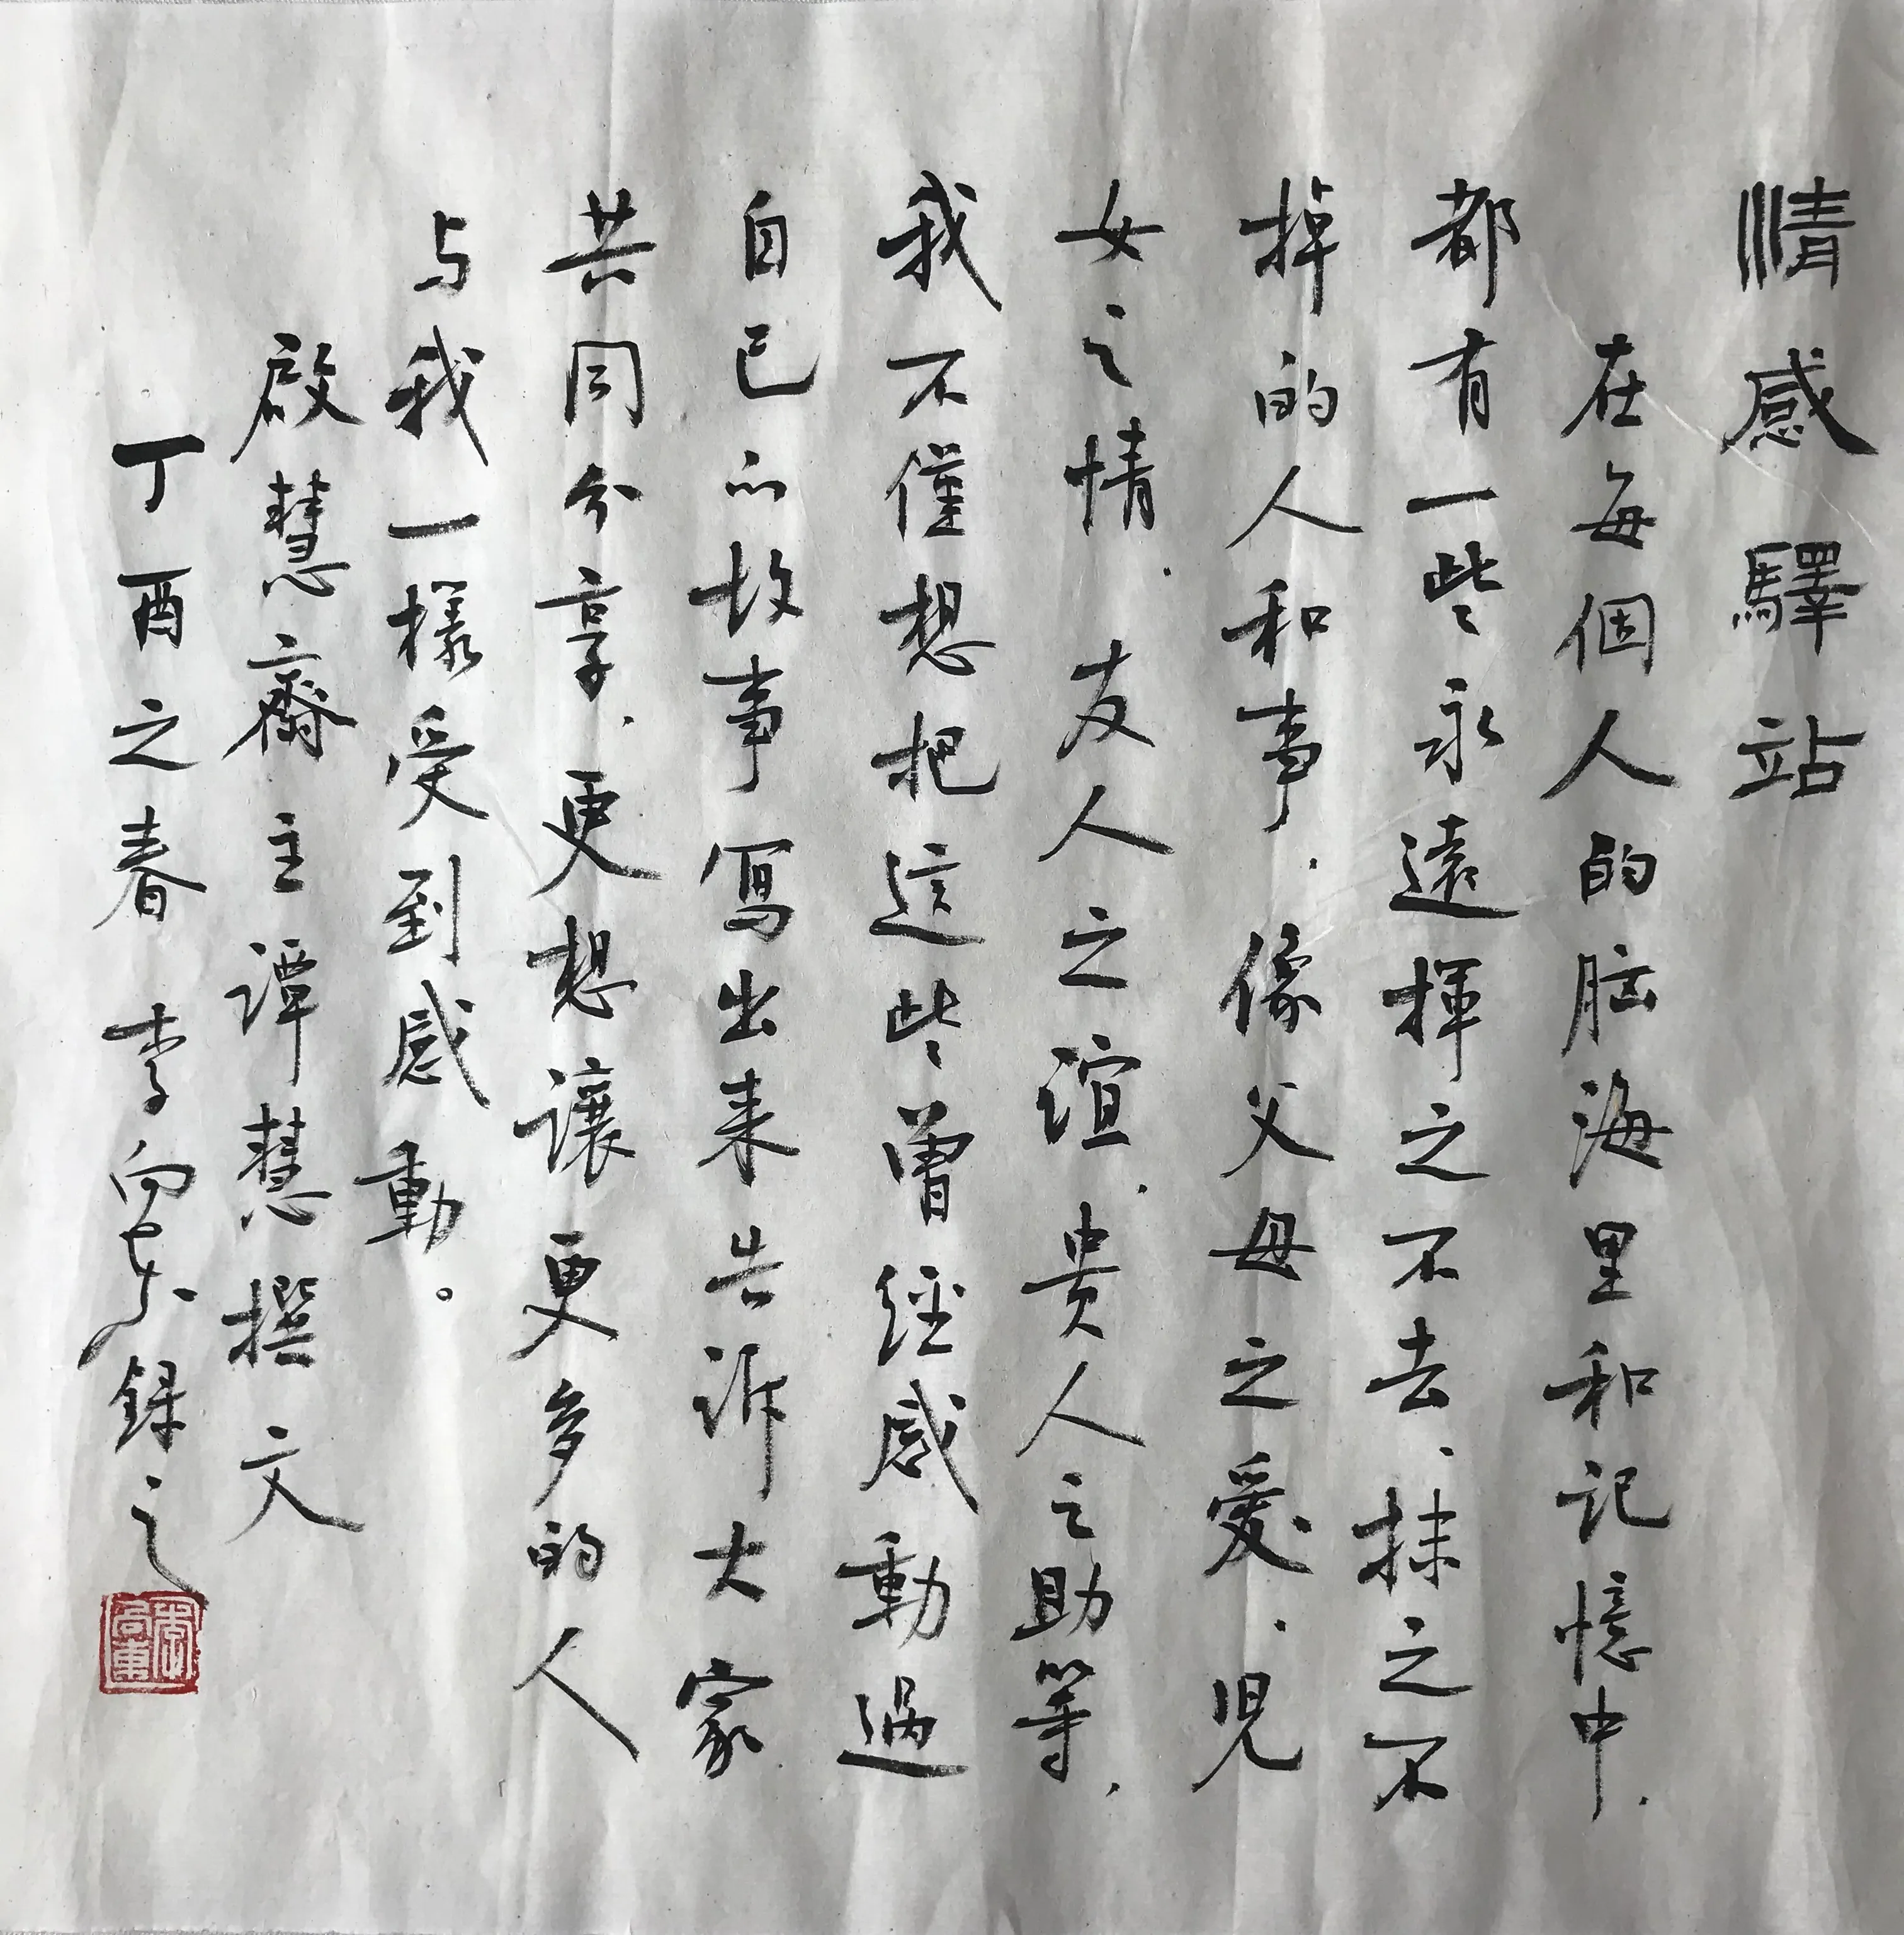 情感驛站
在每個人的脑海里和记憶中.
都有一些永遠揮之不去、抹之不
掉的人和事.像父母之愛.児
女之情.友人之谊.贵人之助等.
我不僅想把這些曽经感動過
自己的故事写出来告诉大家
共同分享.更想讓更多的人
与我一樣受到感動。
啟慧齋主谭慧撰文
丁酉之春李向东録之
李向東